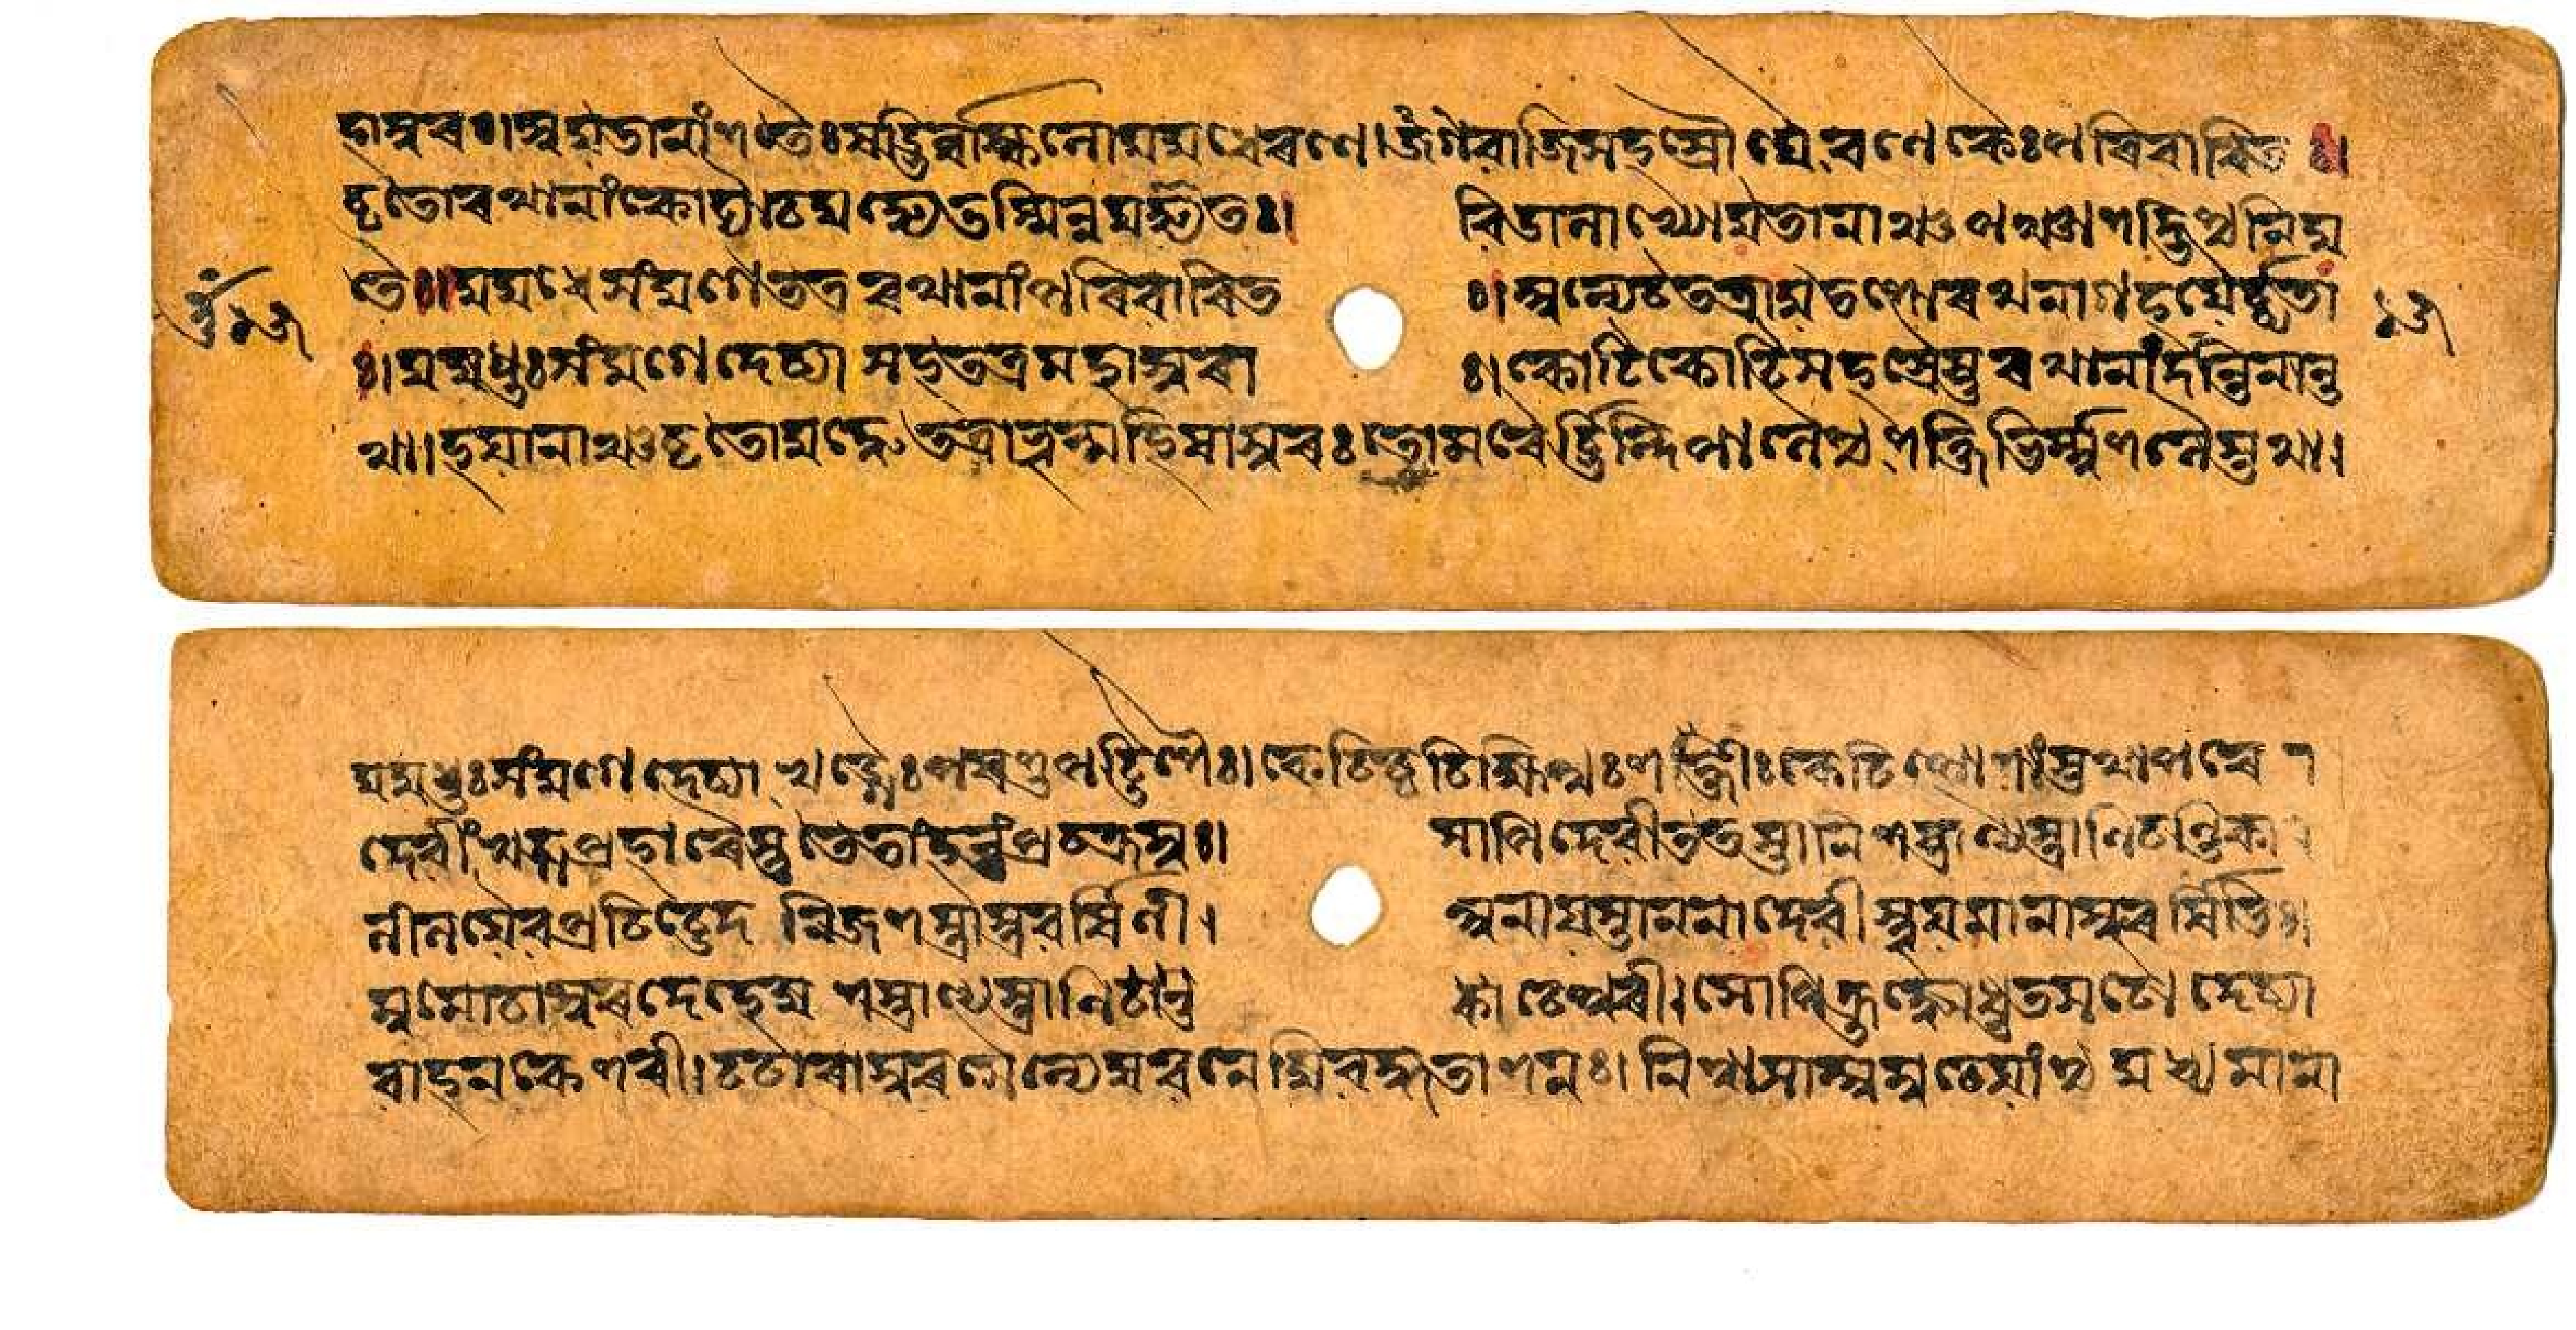 হাসুৰঃ।অযুতানাং শতৈঃ ষড্ভির্ব্বাষ্কলো যুযুধে ৰণে। গজবাজিসহস্রৌঘৈৰণেকৈঃ পৰিবাৰিতঃ।
বৃতো ৰথানাং কোট্যা চ যুদ্ধে তস্মিন্নযুধ্যতঃ। বিডালাখ্যোযুতানাঞ্চ পঞ্চাশদ্ভিৰথাযু
তৈঃ॥ যুযুধে সংযুগে তত্ৰ ৰথানাং পৰিবাৰিতঃ। অন্যে চ তত্ৰাযুতশো ৰথনাগহযৈর্ব্বৃতাঃ
। যুযুধুঃ সংযুগে দেব্যা সহ তত্ৰ মহাসুৰাঃ। কোটিকোটিসহস্ৰৈস্তু ৰথানাং দন্তিনান্ত
থা। হযানাঞ্চ বৃতো যুদ্ধে তত্ৰাভূন্মহিষাসুৰঃ তোমৰৈর্ভিন্দিপালৈশ্চ শক্তিভির্ম্মুশলৈস্তথা।
যুযুধুঃ সংযুগে দেব্যা খড্গৈঃ পৰশুপট্টিশৈঃ। কেচিচ্চ চিক্ষিপুঃ শক্তীঃ কেচিৎ পাশাংস্তথাপৰে
দেবীং খড্গপ্ৰহাৰৈস্তু তে তাং হন্তুং প্ৰচক্ৰমুঃ। সাপি দেবী ততস্তানি শস্ত্ৰাণ্যস্ত্ৰাণি চণ্ডিকা
লীলযৈব প্ৰচিচ্ছেদ নিজশস্ত্ৰাস্ত্ৰবর্ষিণী। অনাযস্তাননা দেবী স্তূযমানা সুৰর্ষিভিঃ।
মুমোচাসুৰদেহেষু শস্ত্ৰাণ্যস্ত্ৰাণি চেশ্বৰী। সোপি ক্ৰুদ্ধো ধুতসটো দেব্যা
বাহনকেশৰী। চচাৰাসুৰসৈন্যেষু বনেষ্বিব হুতাশনঃ। নিশ্বাসান্মুমুচে যাংশ্চ যুধ্যমানা